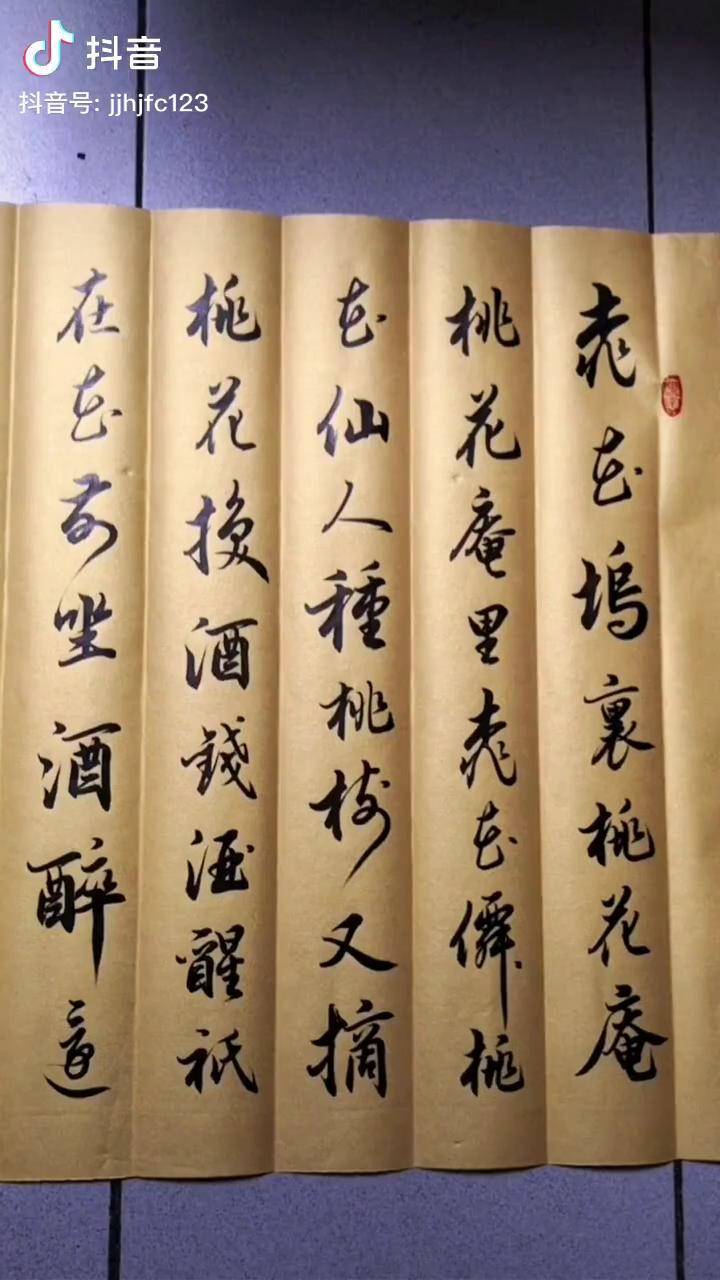 抖音
抖音号: jjhjfc123
桃花塢裏桃花庵
桃花庵里桃花僊桃
花仙人種桃樹又摘
桃花換酒錢酒醒祇
在花前坐酒醉還